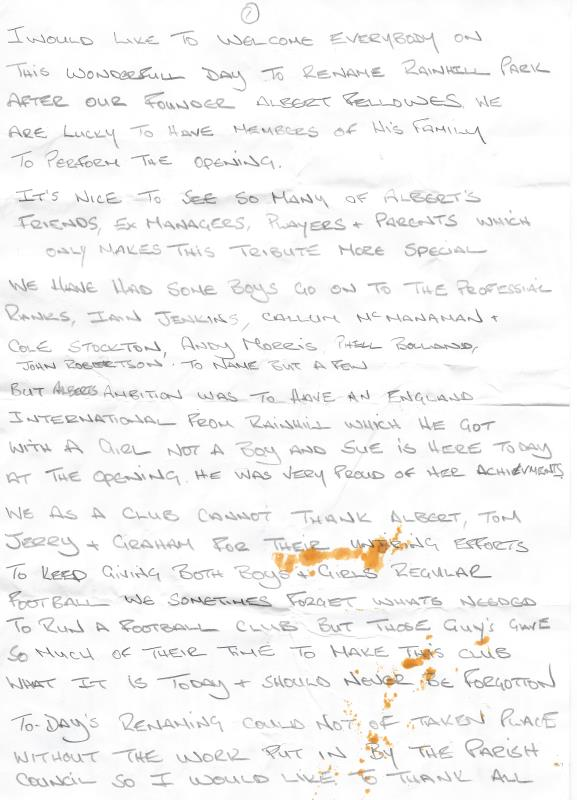 1
I WOULD LIKE TO WELCOME EVERYBODY ON
THIS WONDERFULL DAY TO RENAME RAINHILL PARK
AFTER OUR FOUNDER ALBERT FELLOWES. WE
ARE LUCKY TO HAVE MEMBERS OF HIS FAMILY
TO PERFORM THE OPENING.
IT'S NICE TO SEE SO MANY OF ALBERT'S
FRIENDS, EX MANAGERS, PLAYERS + PARENTS WHICH
ONLY MAKES THIS TRIBUTE MORE SPECIAL
WE HAVE HAD SOME BOYS GO ON TO THE PROFESSIAL
RANKS, IAIN JENKINS, CALLUM McMANAMAN +
COLE STOCKTON, ANDY MORRIS, PHILL BOLLAND,
JOHN ROBERTSON. TO NAME BUT A FEW
BUT ALBERTS AMBITION WAS TO HAVE AN ENGLAND
INTERNATIONAL FROM RAINHILL WHICH HE GOT
WITH A GIRL NOT A BOY AND SUE IS HERE TODAY
AT THE OPENING. HE WAS VERY PROUD OF HER ACHIEVMENTS
WE AS A CLUB CANNOT THANK ALBERT, TOM
JERRY + GRAHAM FOR THEIR UNTIRING EFFORTS
TO KEEP GIVING BOTH BOYS + GIRLS REGULAR
FOOTBALL WE SOMETIMES FORGET WHATS NEEDED
TO RUN A FOOTBALL CLUB BUT THOSE GUY'S GAVE
SO MUCH OF THEIR TIME TO MAKE THIS CLUB
WHAT IT IS TODAY + SHOULD NEVER BE FORGOTTON
TO-DAY'S RENAMING COULD NOT OF TAKEN PLACE
WITHOUT THE WORK PUT IN BY THE PARISH
COUNCIL SO I WOULD LIKE TO THANK ALL